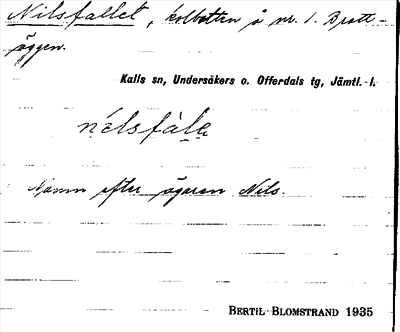 Nilsfallet, kolbotten å nr. 1. Bratt-
äggen.
Kalls sn, Undersåkers o. Offerdals tg, Jämtl. l.
nilsfàlą
Namn efter ägaren Nils.
BERTIL BLOMSTRAND 1935